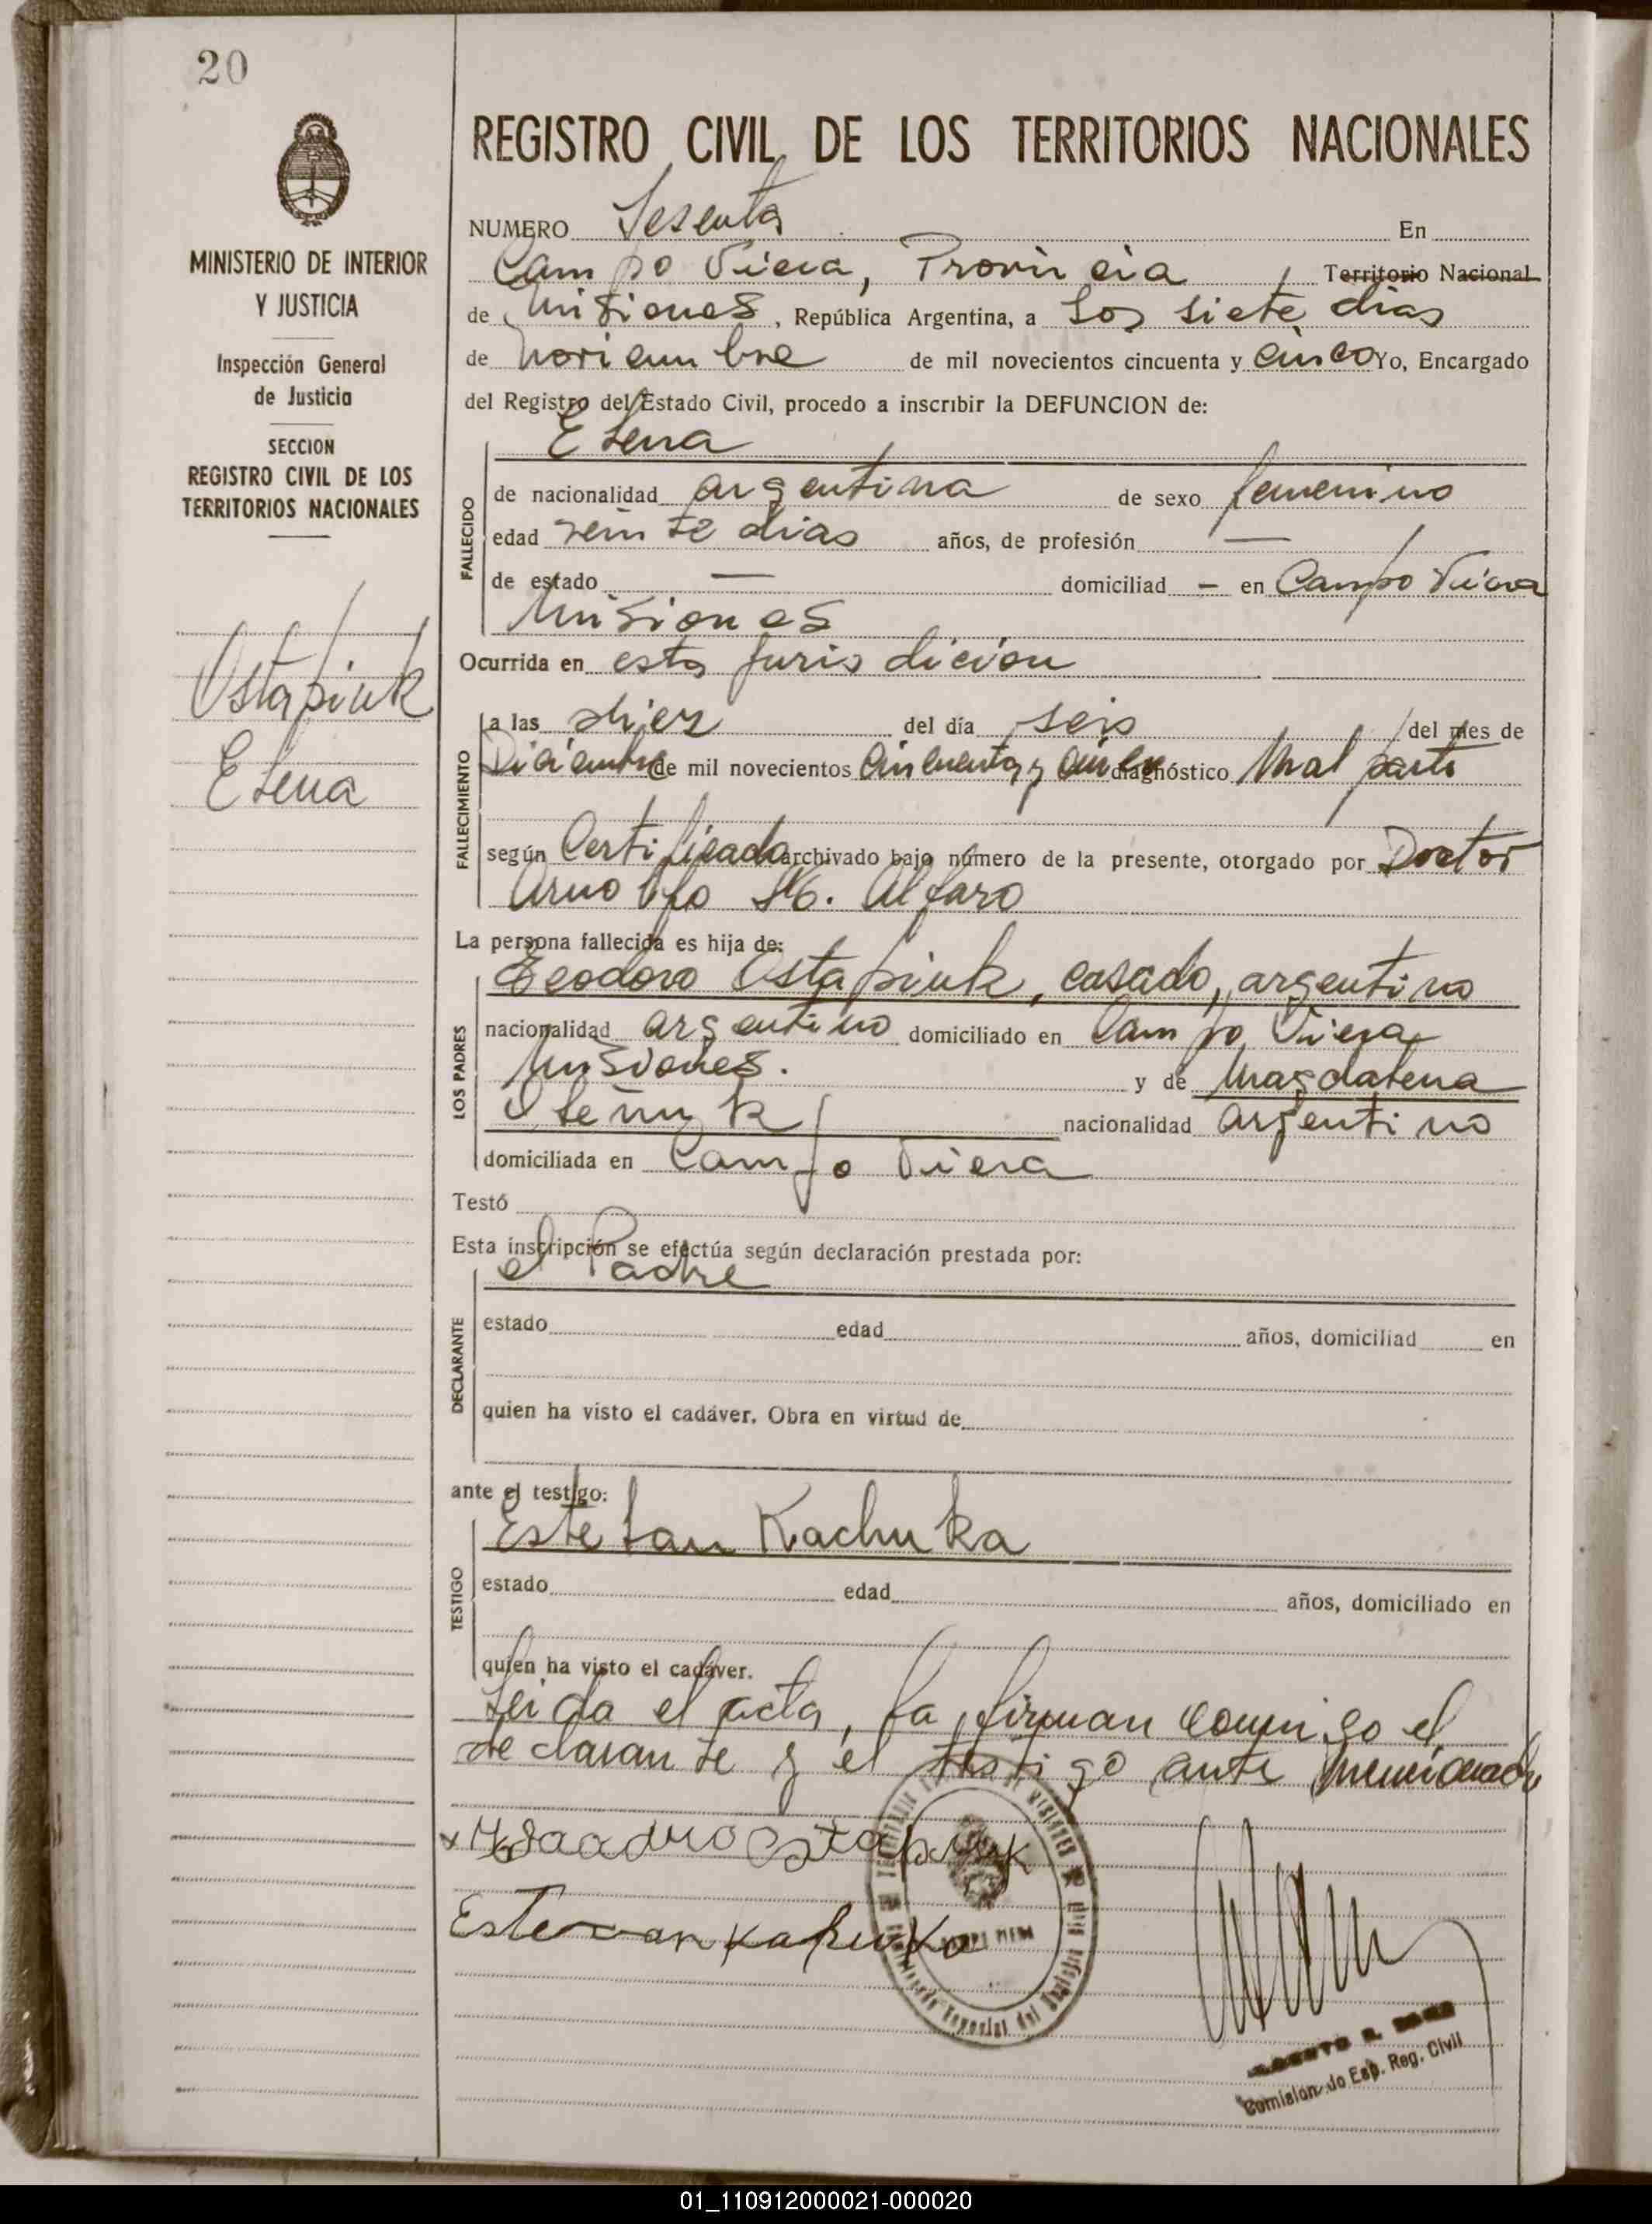 20
REGISTRO CIVIL DE LOS TERRITORIOS NACIONALES
MINISTERIO DE INTERIOR
Y JUSTICIA
Inspección General
de Justicia
SECCION
REGISTRO CIVIL DE LOS
TERRITORIOS NACIONALES
Ostapiuk
Elena
NUMERO Sesenta En
Campo Viera, Provincia Territorio Nacional
de Misiones, República Argentina, a los siete dias
de Noviembre de mil novecientos cincuenta y cinco Yo, Encargado
del Registro del Estado Civil, procedo a inscribir la DEFUNCION de:
Elena
FALLECIDO
de nacionalidad argentina de sexo femenino
edad veinte dias años, de profesión —
de estado — domiciliad - en Campo Viera
Misiones
Ocurrida en esta jurisdicion
FALLECIMIENTO
a las diez del día seis del mes de
Diciembre de mil novecientos cincuenta y cinco diagnóstico Mal parto
según Certificado archivado bajo número de la presente, otorgado por Doctor
Arnoldo M. Alfaro
La persona fallecida es hija de:
LOS PADRES
Teodoro Ostapiuk, casado, argentino
nacionalidad argentino domiciliado en Campo Viera
Misiones. y de Magdalena
nacionalidad argentino
domiciliada en Campo Viera
Testó
Esta inscripción se efectúa según declaración prestada por:
el Padre
DECLARANTE
estado edad años, domiciliad en
quien ha visto el cadáver. Obra en virtud de
ante el testigo:
Estefan Kachuka
TESTIGO
estado edad años, domiciliado en
quien ha visto el cadáver.
Leida el acta, la firman conmigo el
declarante y el testigo ante mencionado
Ostapiuk
Estevan
Comisionado Esp. Reg. Civil
01_110912000021-000020